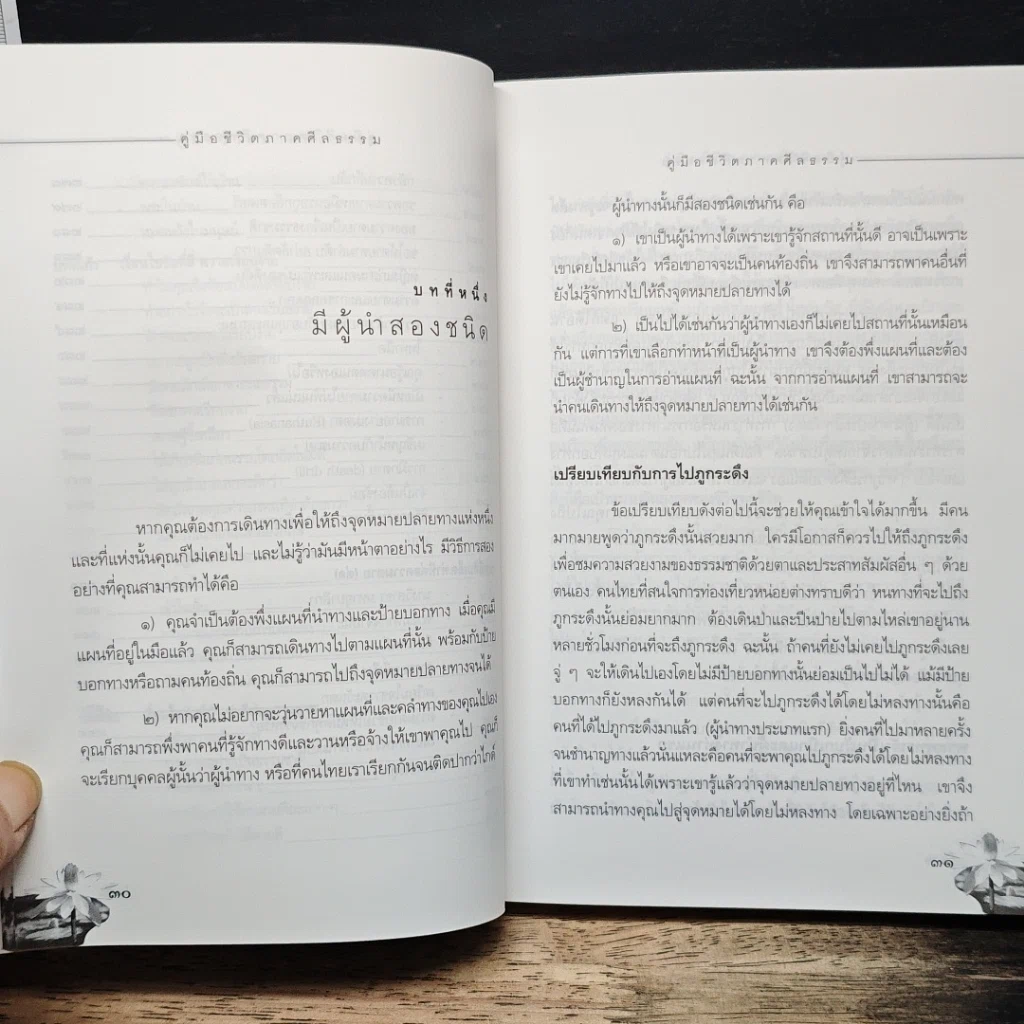 คู่มือชีวิตภาคศีลธรรม
บทที่หนึ่ง
มีผู้นำสองชนิด
หากคุณต้องการเดินทางเพื่อให้ถึงจุดหมายปลายทางแห่งหนึ่ง
และที่แห่งนั้นคุณก็ไม่เคยไป และไม่รู้ว่ามันมีหน้าตาอย่างไร มีวิธีการสอง
อย่างที่คุณสามารถทำได้คือ
๑) คุณจำเป็นต้องพึ่งแผนที่นำทางและป้ายบอกทาง เมื่อคุณมี
แผนที่อยู่ในมือแล้ว คุณก็สามารถเดินทางไปตามแผนที่นั้น พร้อมกับป้าย
บอกทางหรือถามคนท้องถิ่น คุณก็สามารถไปถึงจุดหมายปลายทางจนได้
๒) หากคุณไม่อยากจะวุ่นวายหาแผนที่และคลำทางของคุณไปเอง
คุณก็สามารถพึ่งพาคนที่รู้จักทางดีและวานหรือจ้างให้เขาพาคุณไป คุณก็
จะเรียกบุคคลผู้นั้นว่าผู้นำทาง หรือที่คนไทยเราเรียกกันจนติดปากว่าไกด์
๓๐
คู่มือชีวิตภาคศีลธรรม
ผู้นำทางนั้นก็มีสองชนิดเช่นกัน คือ
๑) เขาเป็นผู้นำทางได้เพราะเขารู้จักสถานที่นั้นดี อาจเป็นเพราะ
เขาเคยไปมาแล้ว หรือเขาอาจจะเป็นคนท้องถิ่น เขาจึงสามารถพาคนอื่นที่
ยังไม่รู้จักทางไปให้ถึงจุดหมายปลายทางได้
๒) เป็นไปได้เช่นกันว่าผู้นำทางเองก็ไม่เคยไปสถานที่นั้นเหมือน
กัน แต่การที่เขาเลือกทำหน้าที่เป็นผู้นำทาง เขาจึงต้องพึ่งแผนที่และต้อง
เป็นผู้ชำนาญในการอ่านแผนที่ ฉะนั้น จากการอ่านแผนที่ เขาสามารถจะ
นำคนเดินทางให้ถึงจุดหมายปลายทางได้เช่นกัน
เปรียบเทียบกับการไปภูกระดึง
ข้อเปรียบเทียบดังต่อไปนี้จะช่วยให้คุณเข้าใจได้มากขึ้น มีคน
มากมายพูดว่าภูกระดึงนั้นสวยมาก ใครมีโอกาสก็ควรไปให้ถึงภูกระดึง
เพื่อชมความสวยงามของธรรมชาติด้วยตาและประสาทสัมผัสอื่น ๆ ด้วย
ตนเอง คนไทยที่สนใจการท่องเที่ยวหน่อยต่างทราบดีว่า หนทางที่จะไปถึง
ภูกระดึงนั้นย่อมยากมาก ต้องเดินป่าและปีนป่ายไปตามไหล่เขาอยู่นาน
หลายชั่วโมงก่อนที่จะถึงภูกระดึง ฉะนั้น ถ้าคนที่ยังไม่เคยไปภูกระดึงเลย
จู่ ๆ จะให้เดินไปเองโดยไม่มีป้ายบอกทางนั้นย่อมเป็นไปไม่ได้ แม้มีป้าย
บอกทางก็ยังหลงกันได้ แต่คนที่จะไปภูกระดึงได้โดยไม่หลงทางนั้นคือ
คนที่ได้ไปภูกระดึงมาแล้ว (ผู้นำทางประเภทแรก) ยิ่งคนที่ไปมาหลายครั้ง
จนชำนาญทางแล้วนั่นแหละคือคนที่จะพาคุณไปภูกระดึงได้โดยไม่หลงทาง
ที่เขาทำเช่นนั้นได้เพราะเขารู้แล้วว่าจุดหมายปลายทางอยู่ที่ไหน เขาจึง
สามารถนำทางคุณไปสู่จุดหมายได้โดยไม่หลงทาง โดยเฉพาะอย่างยิ่งถ้า
๓๑